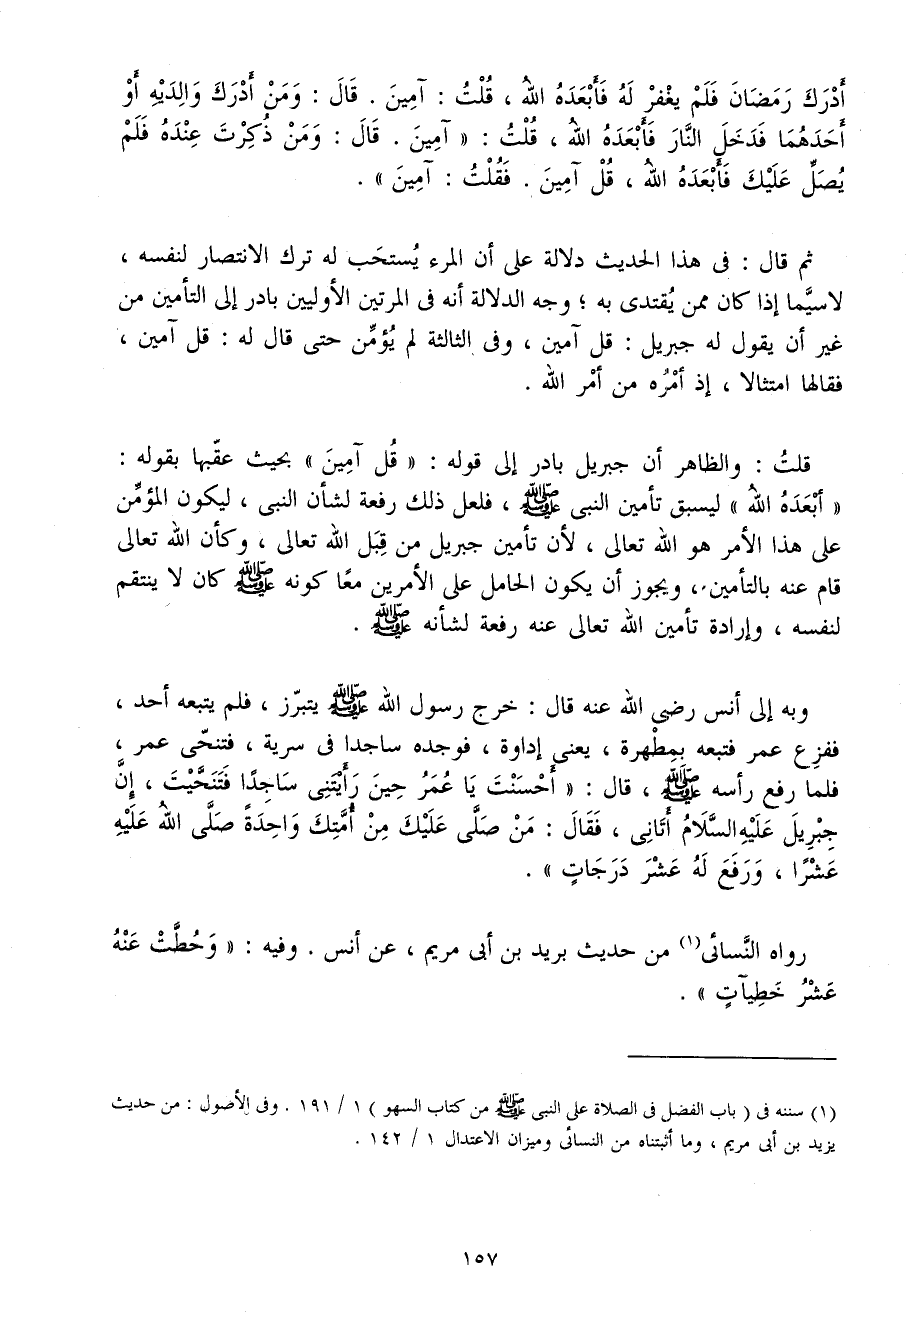 أَدْرَكَ رَمَضَانَ فَلَمْ يغْفرْ لَهُ فَأَبْعَدَهُ اللهُ ، قُلْتُ : آمِينَ . قَالَ : وَمَنْ أَدْرَكَ وَالِدَيْهِ أَوْ
أَحَدَهُمَا فَدَخَلَ النَّارَ فَأَبْعَدَهُ اللهُ ، قُلْتُ : « آمِينَ . قَالَ : وَمَنْ ذُكِرْتَ عِنْدَهُ فَلَمْ
يُصَلِّ عَلَيْكَ فَأَبْعَدَهُ اللهُ ، قُلْ آمِينَ . فَقُلْتُ : آمِينَ » .
ثم قال : فى هذا الحديث دلالة على أن المرء يُستحَب له ترك الانتصار لنفسه ،
لاسيَّما إذا كان ممن يُقتدى به ؛ وجه الدلالة أنه فى المرتين الأوليين بادر إلى التأمين من
غير أن يقول له جبريل : قل آمين ، وفى الثالثة لم يُؤمِّن حتى قال له : قل آمين ،
فقالها امتثالا ، إذ أمْرُه من أمْر الله .
قلتُ : والظاهر أن جبريل بادر إلى قوله : « قُل آمِينَ » بحيث عقّبها بقوله :
« أَبْعَدَهُ اللهُ » ليسبق تأمين النبى ﷺ ، فلعل ذلك رفعة لشأن النبى ، ليكون المؤمِّن
على هذا الأمر هو الله تعالى ، لأن تأمين جبريل من قِبَل الله تعالى ، وكأن الله تعالى
قام عنه بالتأمين ، ويجوز أن يكون الحامل على الأمرين معًا كونه ﷺ كان لا ينتقم
لنفسه ، وإرادة تأمين الله تعالى عنه رفعة لشأنه ﷺ .
وبه إلى أنس رضى الله عنه قال : خرج رسول الله ﷺ يتبرّز ، فلم يتبعه أحد ،
ففزِع عمر فتبعه بمِطْهرة ، يعنى إداوة ، فوجده ساجدا فى سرية ، فتنحّى عمر ،
فلما رفع رأسه ﷺ ، قال : « أَحْسَنْتَ يَا عُمَرُ حِينَ رَأَيْتَنِى سَاجِدًا فَتَنَحَّيْتَ ، إِنَّ
جِبْرِيلَ عَلَيْهِ السَّلَامُ أَتَانِى ، فَقَالَ : مَنْ صَلَّى عَلَيْكَ مِنْ أُمَّتِكَ وَاحِدَةً صَلَّى اللهُ عَلَيْهِ
عَشْرًا ، وَرَفَعَ لَهُ عَشْرَ دَرَجَاتٍ » .
رواه النَّسائى(١) من حديث بريد بن أبى مريم ، عن أنس . وفيه : « وَحُطَّتْ عَنْهُ
عَشْرُ خَطِيآتٍ » .
(١) سننه فى ( باب الفضل فى الصلاة على النبى ﷺ من كتاب السهو ) ١ / ١٩١ . وفى الأصول : من حديث
يزيد بن أبى مريم ، وما أثبتناه من النسائى وميزان الاعتدال ١ / ١٤٢ .
١٥٧